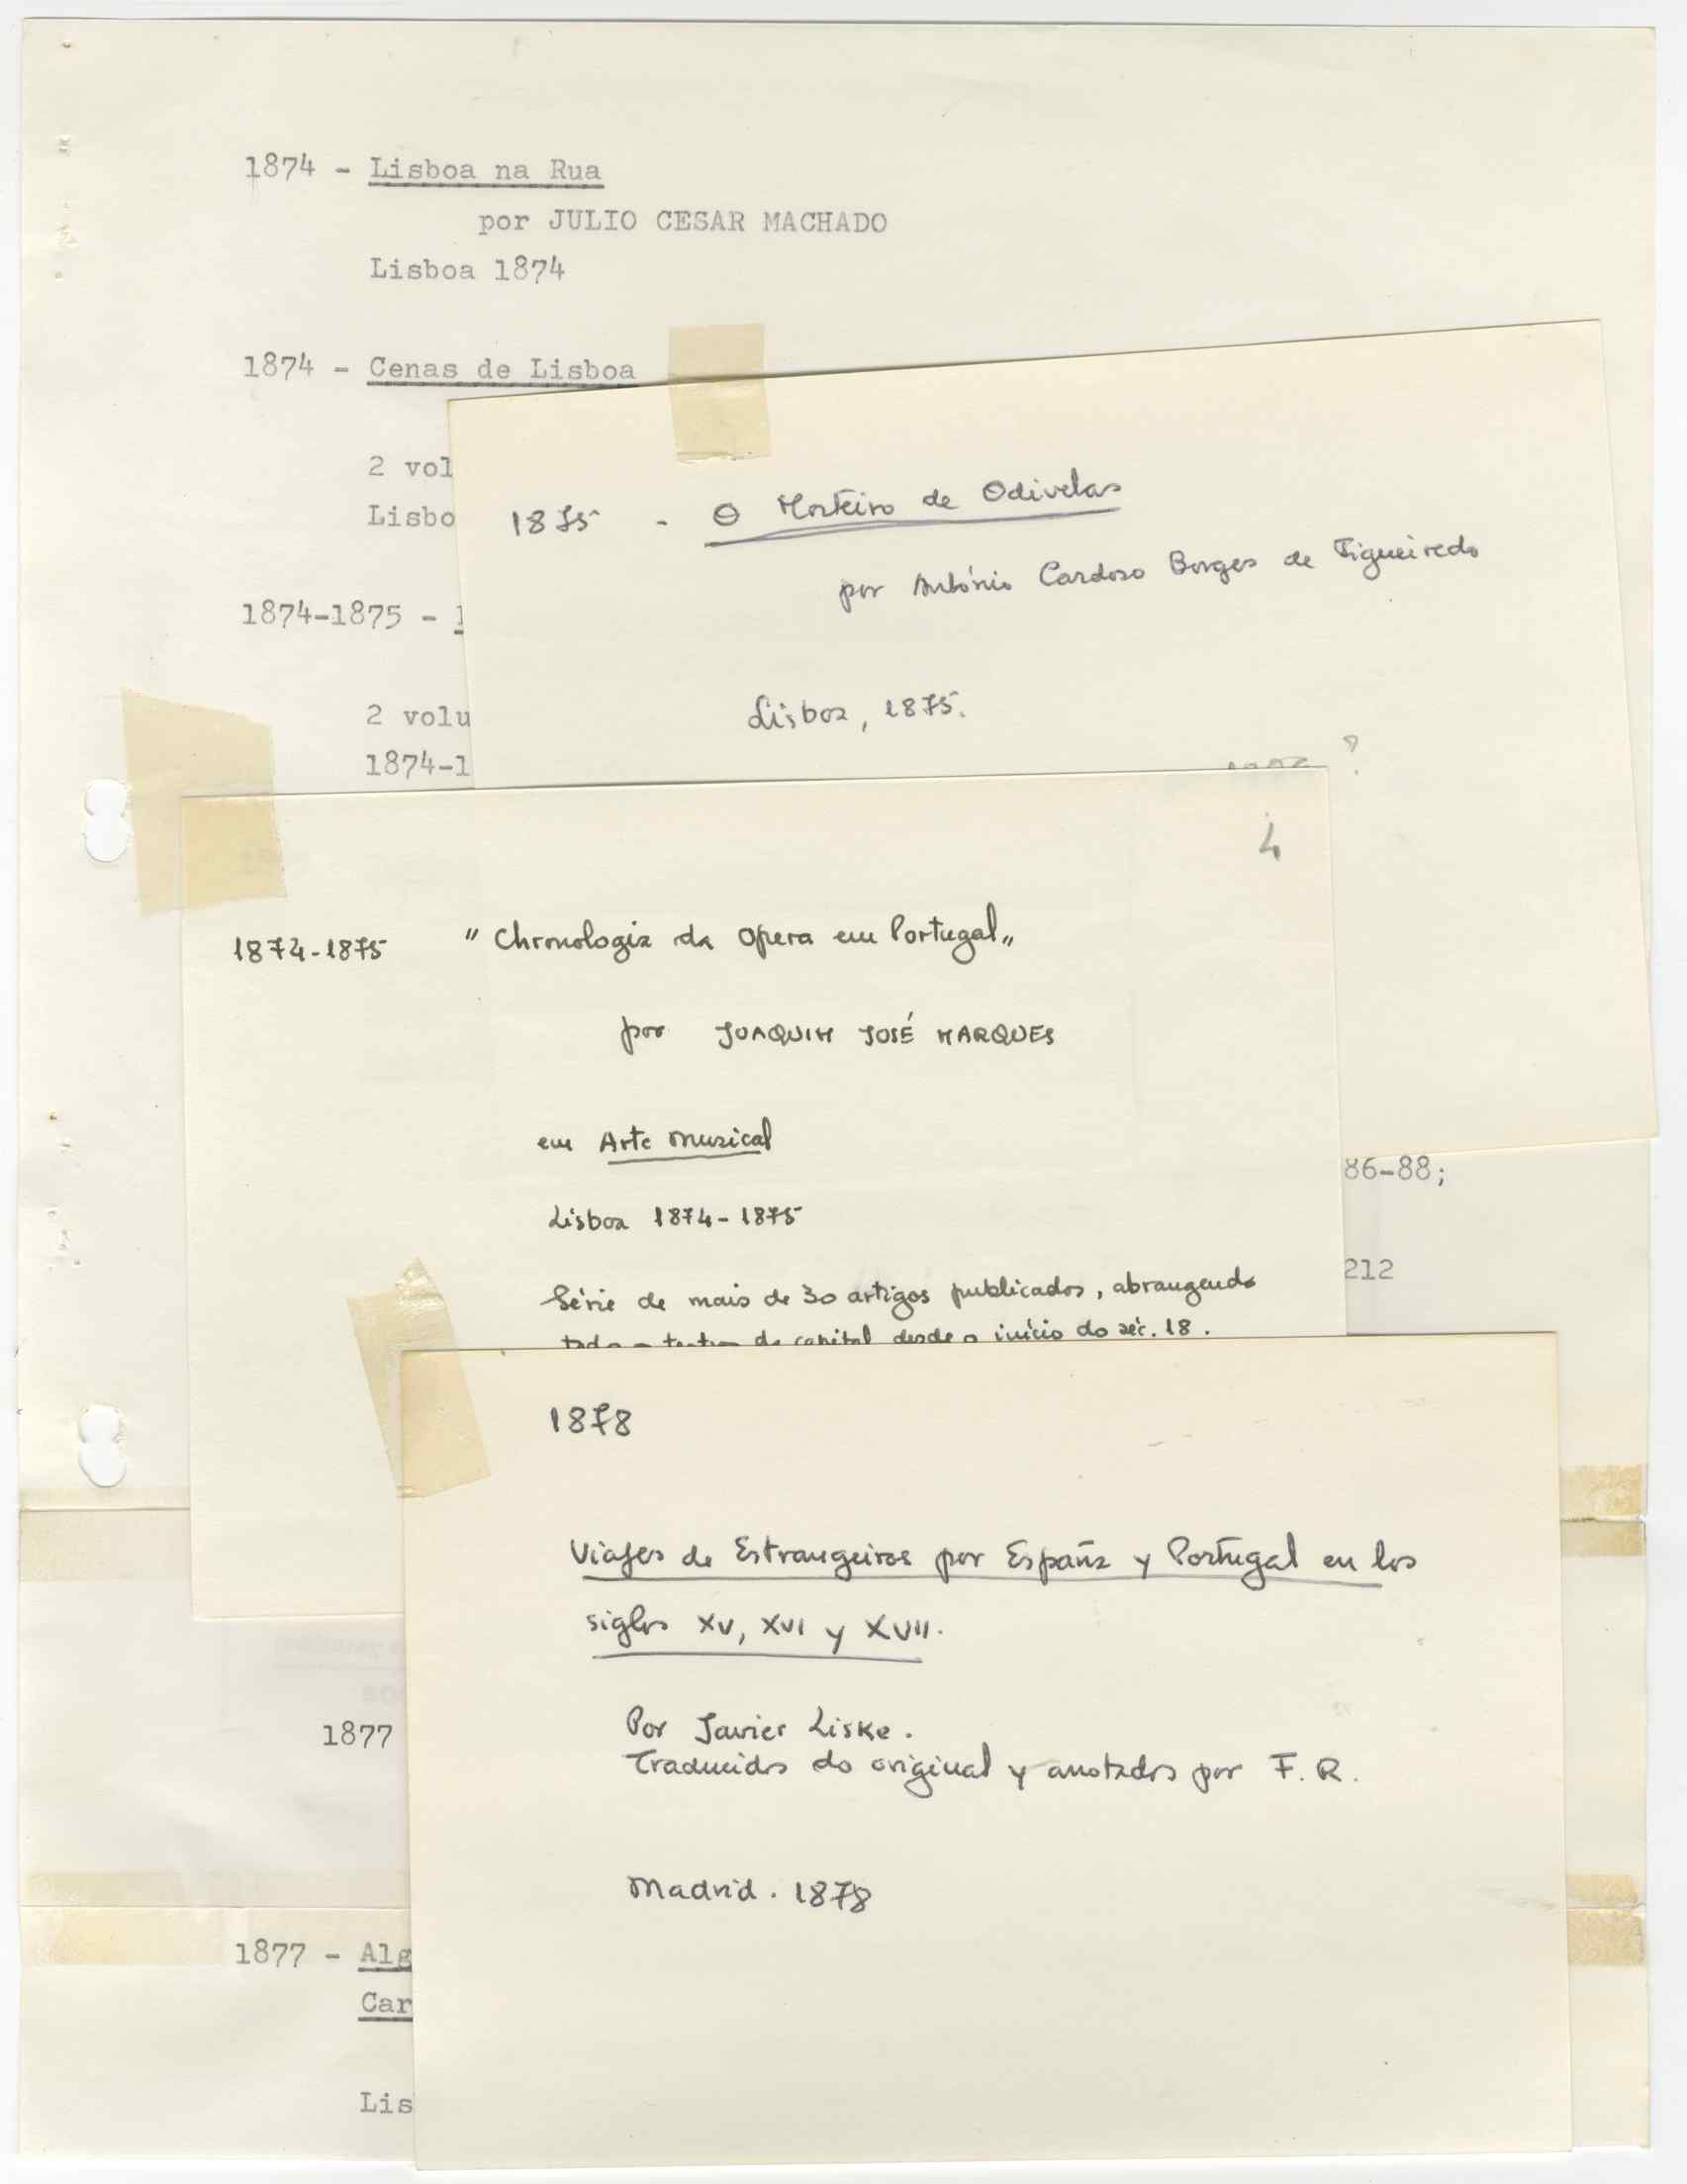 1874 - Lisboa na Rua
por JULIO CESAR MACHADO
Lisboa 1874
1874 - Cenas de Lisboa
2 vol
Lisbo
1874-1875 -
2 volu
1874-1
1875 - O Mosteiro de Odivelas
por António Cardoso Borges de Figueiredo
Lisboa, 1875.
?
4
1874-1875 "Chronologia da opera em Portugal"
por JOAQUIM JOSÉ MARQUES
em Arte musical
Lisboa 1874-1875
Série de mais de 30 artigos publicados, abrangendo
desde o início do séc. 18.
86-88;
212
1878
Viajes de Estrangeiros por España y Portugal en los
siglos XV, XVI y XVII.
Por Javier Liske.
Traducidos do original y anotados por F. R.
Madrid. 1878
1877
1877 - Alg
Car
Lis